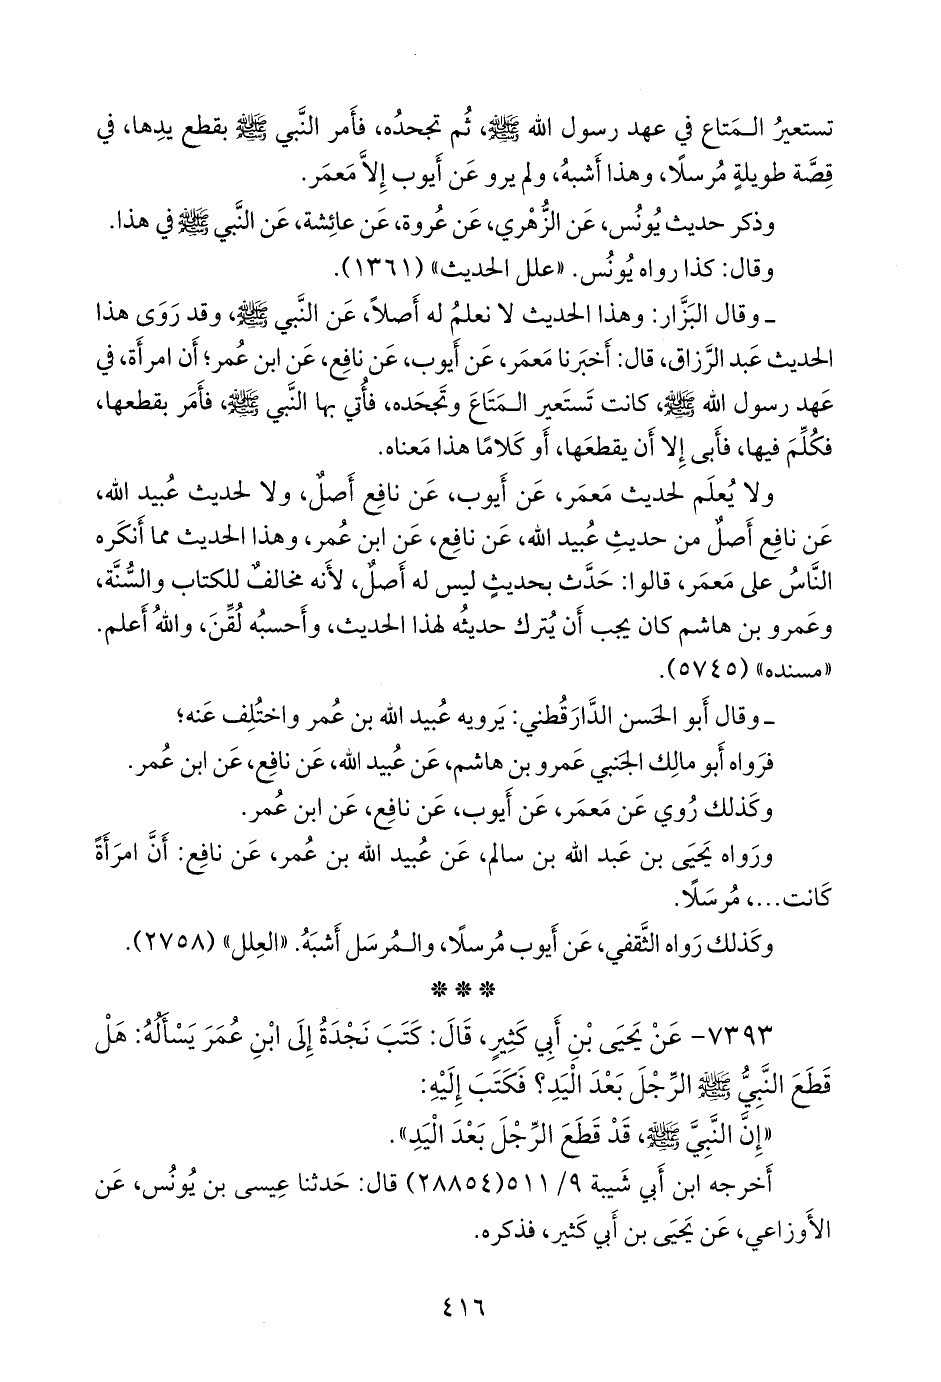 تستعيرُ الـمَتاع في عهد رسول الله ﷺ، ثُم تجحدُه، فأَمر النَّبي ﷺ بقطع يدِها، في
قِصَّة طويلةٍ مُرسلًا، وهذا أَشبهُ، ولم يرو عَن أَيوب إِلاَّ مَعمَر.
وذكر حديث يُونُس، عَن الزُّهْري، عَن عُروة، عَن عائِشة، عَن النَّبي ﷺ في هذا.
وقال: كذا رواه يُونُس. «علل الحديث» (١٣٦١).
ـ وقال البَزَّار: وهذا الحديث لا نعلمُ له أَصلاً، عَن النَّبي ﷺ، وقد رَوَى هذا
الحديث عَبد الرَّزاق، قال: أَخبَرنا مَعمَر، عَن أَيوب، عَن نافِع، عَن ابن عُمر؛ أَن امرأَة، في
عَهد رسول الله ﷺ، كانت تَستَعير الـمَتَاعَ وتَجحَده، فأُتي بها النَّبي ﷺ، فأَمَر بقطعها،
فكُلِّمَ فيها، فأَبى إِلا أَن يقطعَها، أَو كَلامًا هذا مَعناه.
ولا يُعلَم لحديث مَعمَر، عَن أَيوب، عَن نافِع أَصلٌ، ولا لحديث عُبيد الله،
عَن نافِع أَصلٌ من حديثِ عُبيد الله، عَن نافِع، عَن ابن عُمر، وهذا الحديث مما أَنكَره
النَّاسُ على مَعمَر، قالوا: حَدَّث بحديثٍ ليس له أَصلٌ، لأَنه مخالفٌ للكتاب والسُّنَّة،
وعَمرو بن هاشم كان يجب أَن يُترك حديثُه لهذا الحديث، وأَحسبُه لُقِّنَ، واللهُ أَعلم.
«مسنده» (٥٧٤٥).
ـ وقال أَبو الحَسن الدَّارَقُطني: يَرويه عُبيد الله بن عُمر واختُلِف عَنه؛
فرَواه أَبو مالِك الجَنبي عَمرو بن هاشم، عَن عُبيد الله، عَن نافِع، عَن ابن عُمر.
وكَذلك رُوي عَن مَعمَر، عَن أَيوب، عَن نافِع، عَن ابن عُمر.
ورَواه يَحيَى بن عَبد الله بن سالم، عَن عُبيد الله بن عُمر، عَن نافِع: أَنَّ امرَأَةً
كَانت...، مُرسَلًا.
وكَذلك رَواه الثَّقفي، عَن أَيوب مُرسلًا، والـمُرسَل أَشبَهُ. «العِلل» (٢٧٥٨).
* * *
٧٣٩٣- عَنْ يَحيَى بْنِ أَبِي كَثِيرٍ، قَالَ: كَتَبَ نَجْدَةُ إِلَى ابْنِ عُمَرَ يَسْأَلُهُ: هَلْ
قَطَعَ النَّبِيُّ ﷺ الرِّجْلَ بَعْدَ الْيَدِ؟ فَكَتَبَ إِلَيْهِ:
«إِنَّ النَّبِيَّ ﷺ، قَدْ قَطَعَ الرِّجْلَ بَعْدَ الْيَدِ».
أَخرجه ابن أَبي شَيبة ٩/ ٥١١(٢٨٨٥٤) قال: حَدثنا عِيسى بن يُونُس، عَن
الأَوزاعي، عَن يَحيَى بن أَبي كَثير، فذكره.
٤١٦